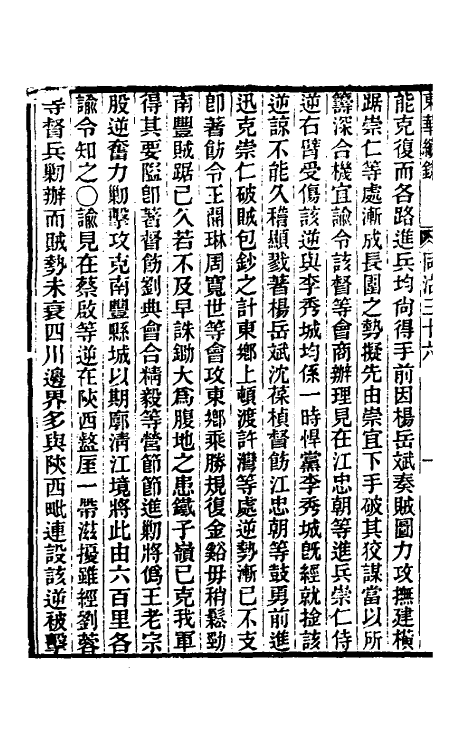 東華續錄 同治三十六 一
能克復而各路進兵均尙得手前因楊岳斌奏賊圖力攻撫建橫
踞崇仁等處漸成長圍之勢擬先由崇宜下手破其狡謀當以所
籌深合機宜諭令該督等會商辦理見在江忠朝等進兵崇仁侍
逆右臂受傷該逆與李秀城均係一時悍黨李秀城旣經就擒該
逆諒不能久稽顯戮著楊岳斌沈葆楨督飭江忠朝等鼓勇前進
迅克崇仁破賊包鈔之計東鄉上頓渡許灣等處逆勢漸已不支
卽著飭令王開琳周寬世等會攻東鄉乘勝規復金谿毋稍鬆勁
南豐賊踞已久若不及早誅鋤大爲腹地之患鐵子嶺已克我軍
得其要隘卽著督飭劉典會合精毅等營節節進剿將僞王老宗
股逆奮力剿擊攻克南豐縣城以期廓清江境將此由六百里各
諭令知之〇諭見在蔡啟等逆在陝西盩厔一帶滋擾雖經劉蓉
等督兵剿辦而賊勢未衰四川邊界多與陝西毗連設該逆被擊